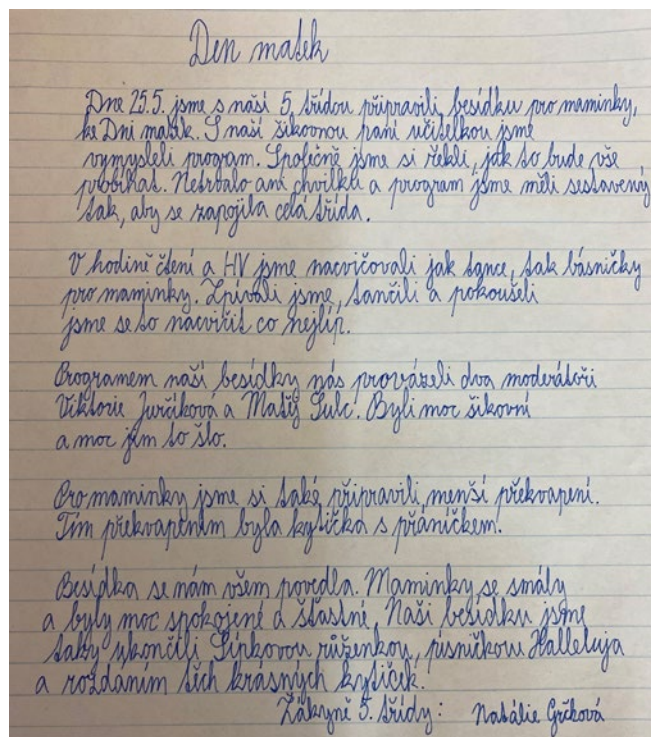 Den matek
Dne 25.5. jsme s naší 5. třídou připravili besídku pro maminky,
ke Dni matek. S naší šikovnou paní učitelkou jsme
vymysleli program. Společně jsme si řekli, jak to bude vše
probíhat. Netrvalo ani chvilku a program jsme měli sestavený
tak, aby se zapojila celá třída.
V hodině čtení a HV jsme nacvičovali jak tance, tak básničky
pro maminky. Zpívali jsme, tančili a pokoušeli
jsme se to nacvičit co nejlíp.
Programem naší besídky nás provázeli dva moderátoři
Viktorie Jurčíková a Matěj Šulc. Byli moc šikovní
a moc jim to šlo.
Pro maminky jsme si také připravili menší překvapení.
Tím překvapením byla kytička s přáníčkem.
Besídka se nám všem povedla. Maminky se smály
a byly moc spokojené a šťastné. Naši besídku jsme
taky ukončili Šípkovou růženkou, písničkou Halleluja
a rozdaním těch krásných kytiček.
Žákyně 5. třídy: Natálie Grčková